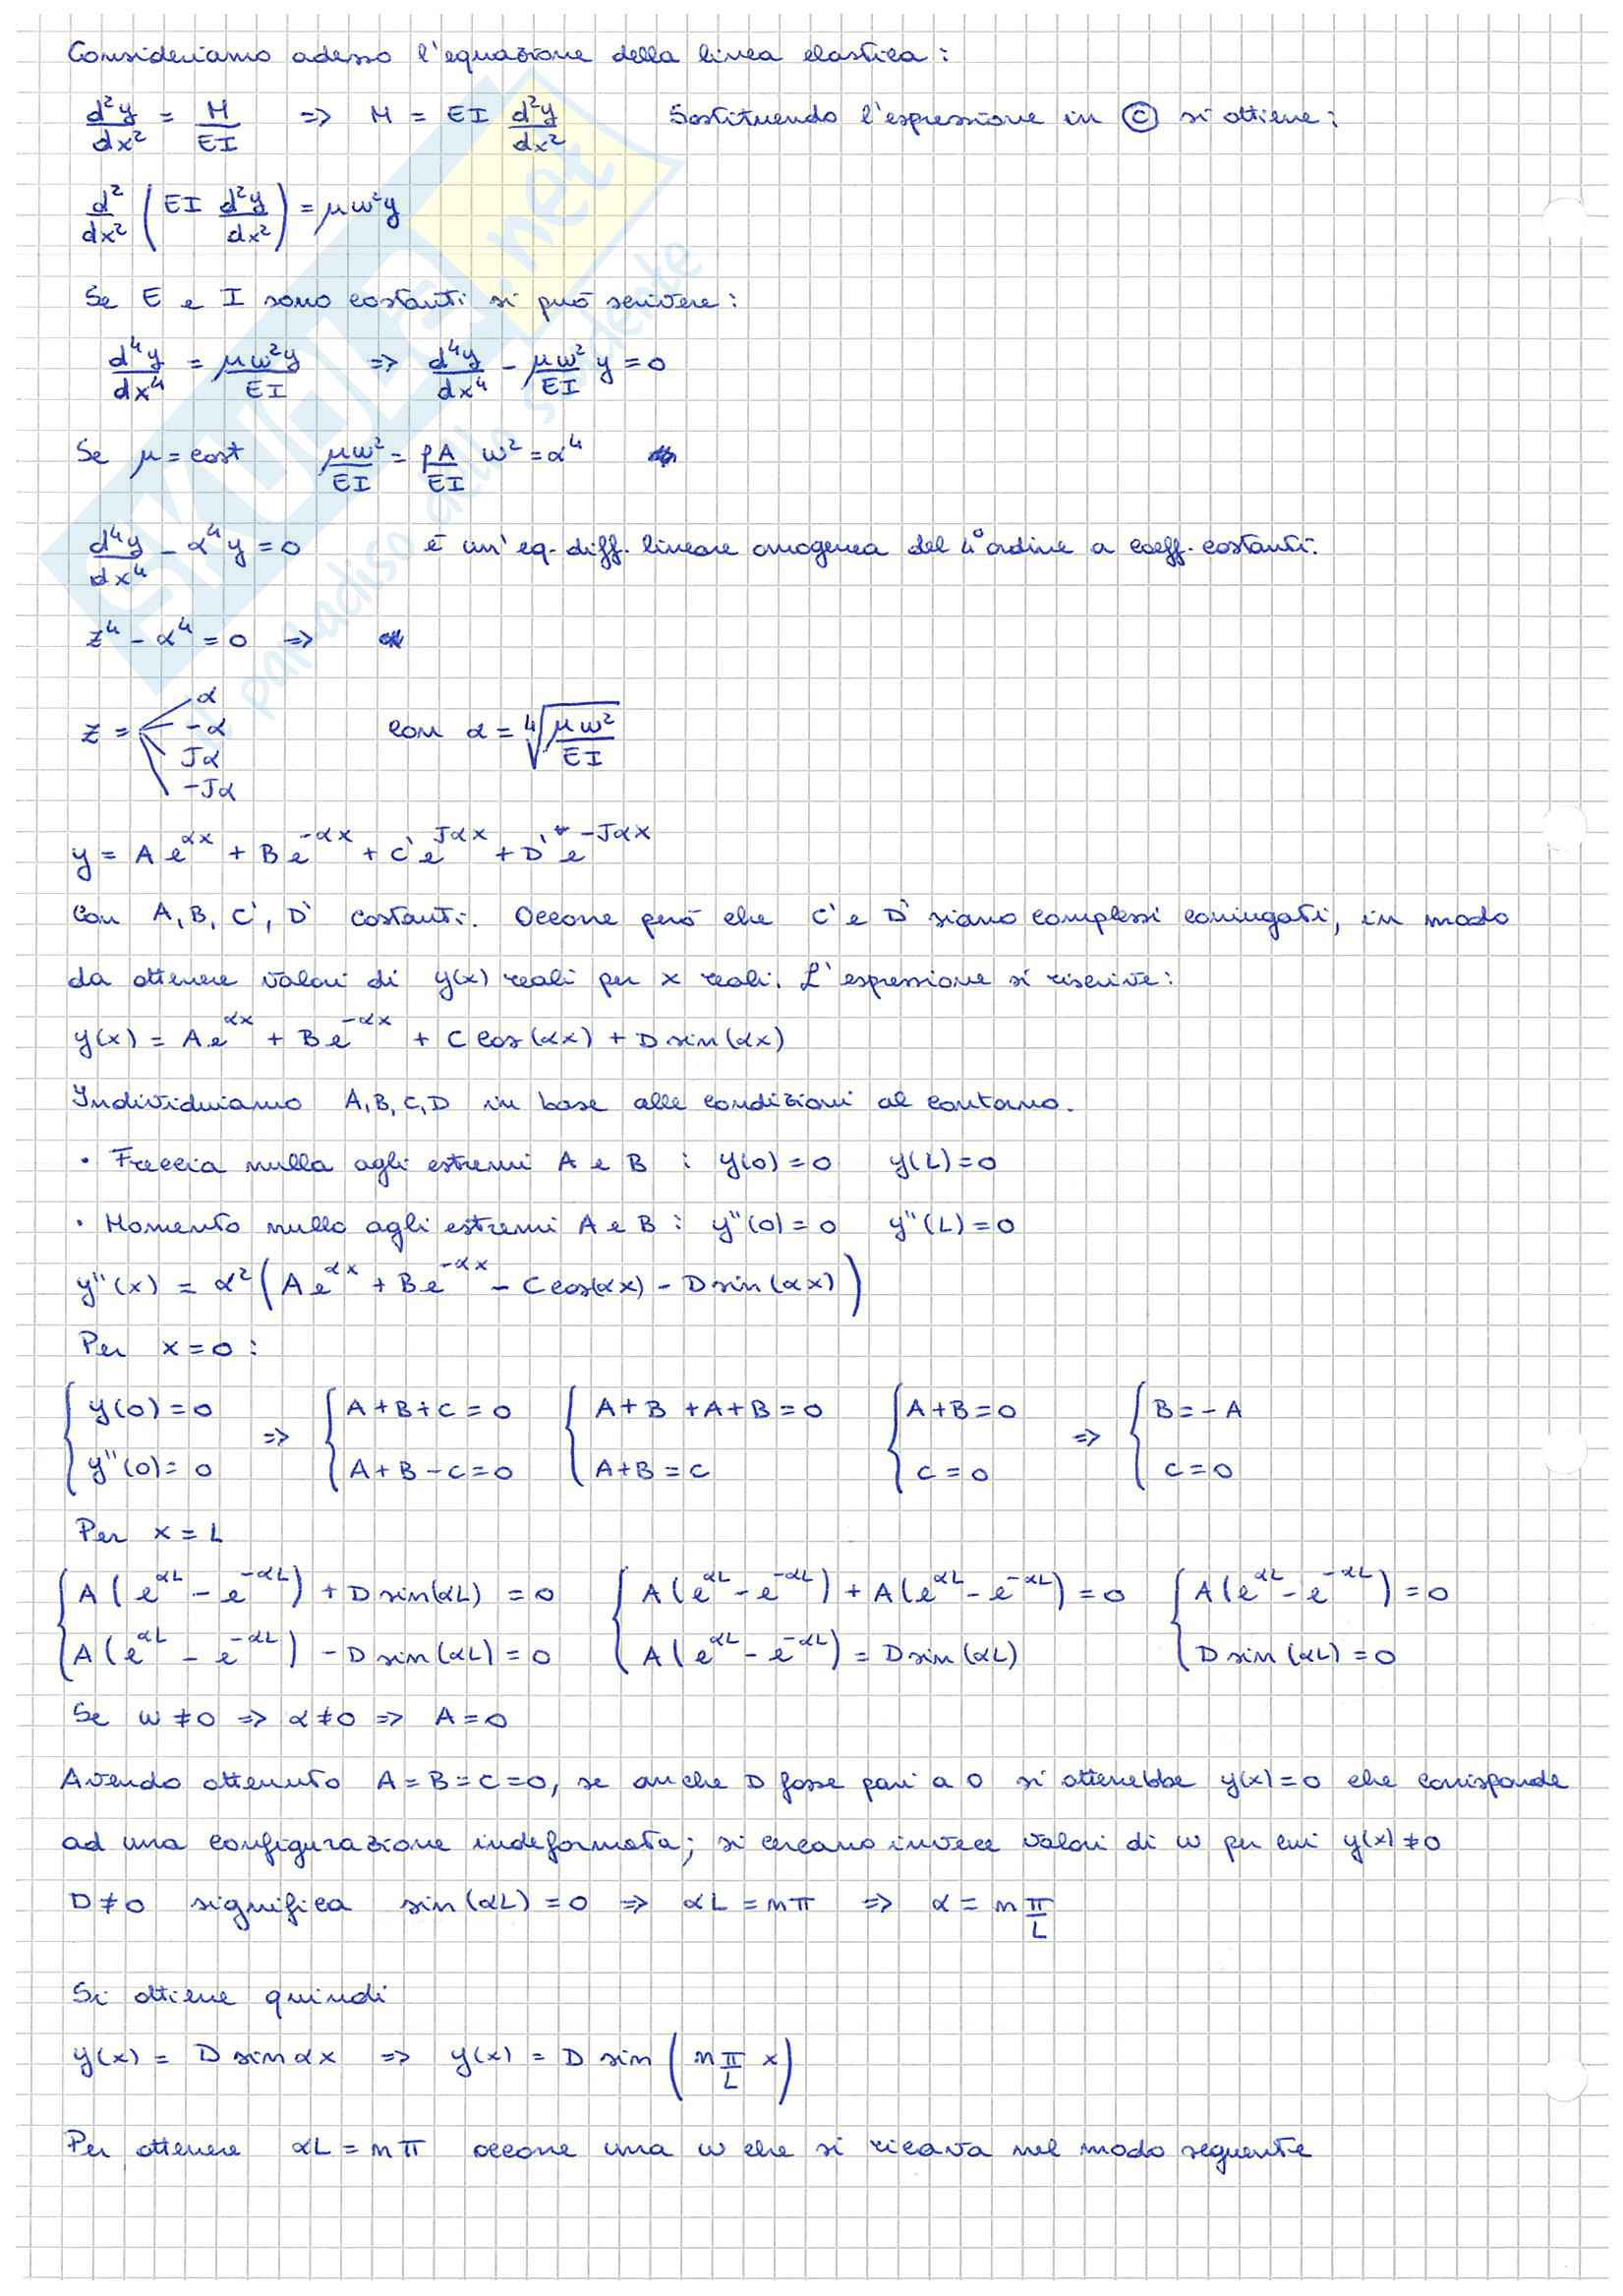 Consideriamo adesso l'equazione della linea elastica:
d²y/dx² = M/EI => M = EI d²y/dx² Sostituendo l'espressione in Ⓒ si ottiene:
d²/dx² (EI d²y/dx²) = μω²y
Se E e I sono costanti si può scrivere:
d⁴y/dx⁴ = μω²y/EI => d⁴y/dx⁴ - μω²/EI y = 0
Se μ = cost μω²/EI = ρA/EI ω² = α⁴
d⁴y/dx⁴ - α⁴y = 0 è un'eq. diff. lineare omogenea del 4° ordine a coeff. costanti.
z⁴ - α⁴ = 0 =>
z = α
-α con α = ⁴√(μω²/EI)
Jα
-Jα
y = A e^αx + B e^-αx + C' e^Jαx + D' e^-Jαx
Con A, B, C', D' costanti. Occorre però che C' e D' siano complessi coniugati, in modo
da ottenere valori di y(x) reali per x reali. L'espressione si riscrive:
y(x) = A e^αx + B e^-αx + C cos(αx) + D sin(αx)
Individuiamo A, B, C, D in base alle condizioni al contorno.
• Freccia nulla agli estremi A e B : y(0) = 0 y(L) = 0
• Momento nullo agli estremi A e B : y''(0) = 0 y''(L) = 0
y''(x) = α² (A e^αx + B e^-αx - C cos(αx) - D sin(αx))
Per x = 0 :
{ y(0) = 0 { A + B + C = 0 { A + B + A + B = 0 { A + B = 0 { B = - A
=> =>
{ y''(0) = 0 { A + B - C = 0 { A + B = C { C = 0 { C = 0
Per x = L
{ A (e^αL - e^-αL) + D sin(αL) = 0 { A (e^αL - e^-αL) + A (e^αL - e^-αL) = 0 { A (e^αL - e^-αL) = 0
{ A (e^αL - e^-αL) - D sin(αL) = 0 { A (e^αL - e^-αL) = D sin(αL) { D sin(αL) = 0
Se ω ≠ 0 => α ≠ 0 => A = 0
Avendo ottenuto A = B = C = 0, se anche D fosse pari a 0 si otterrebbe y(x) = 0 che corrisponde
ad una configurazione indeformata; si cercano invece valori di ω per cui y(x) ≠ 0
D ≠ 0 significa sin(αL) = 0 => αL = nπ => α = n π/L
Si ottiene quindi
y(x) = D sin αx => y(x) = D sin (n π/L x)
Per ottenere αL = nπ occorre una ω che si ricava nel modo seguente
SKUOLA.net
il paradiso dello studente